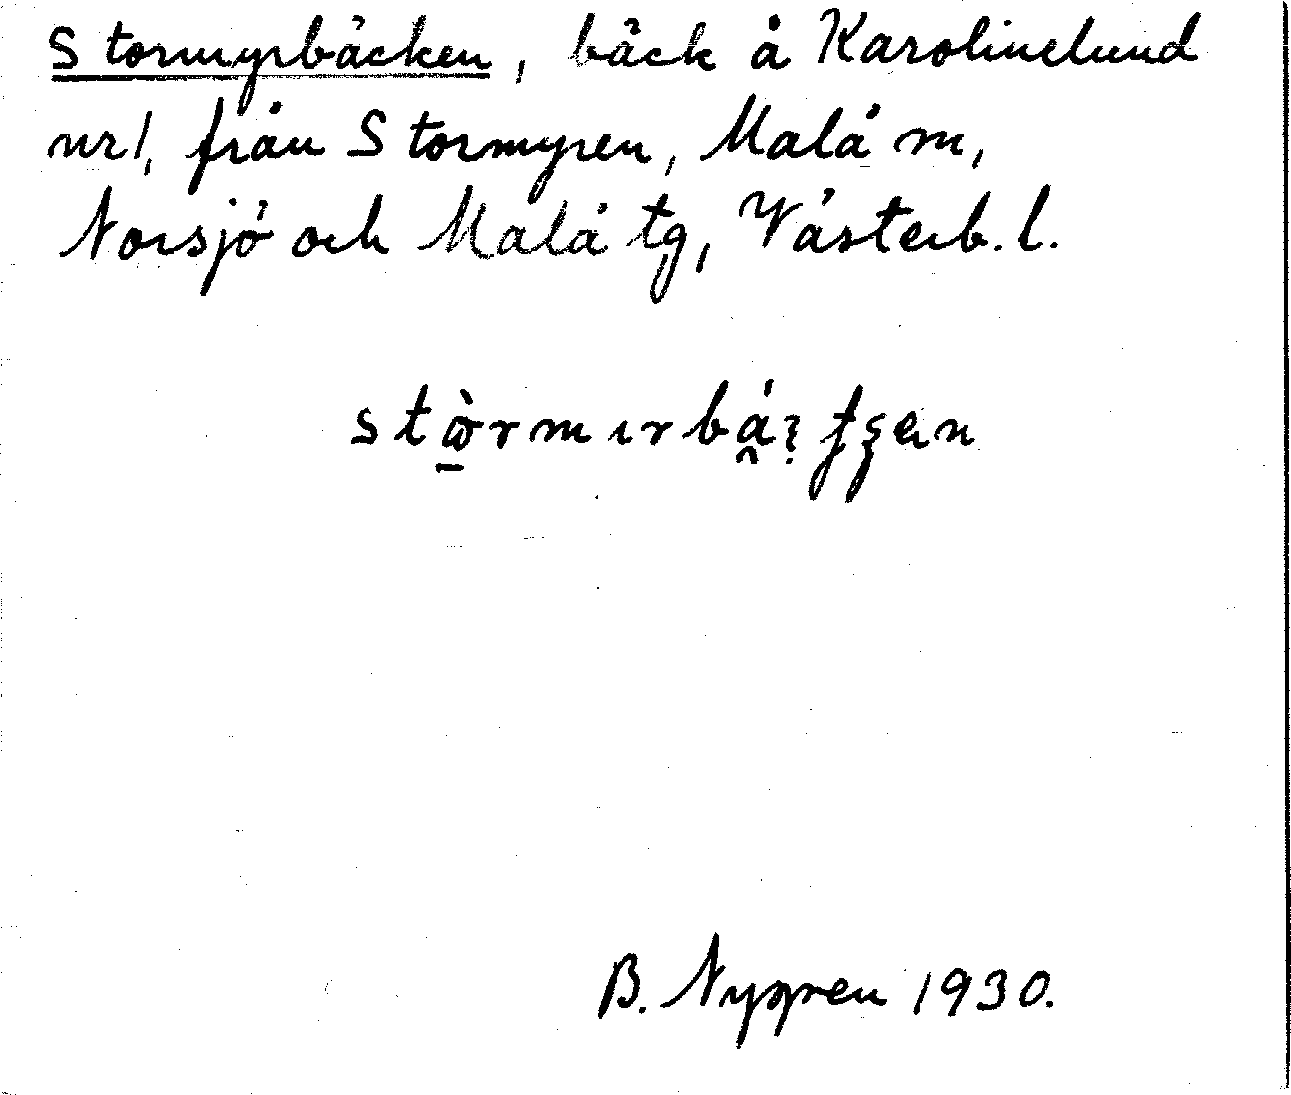 Stormyrbäcken, bäck å Karolinelund
nr 1, från Stormyren, Malå m,
Norsjö och Malå tg, Västerb. l.
B. Nygren 1930.